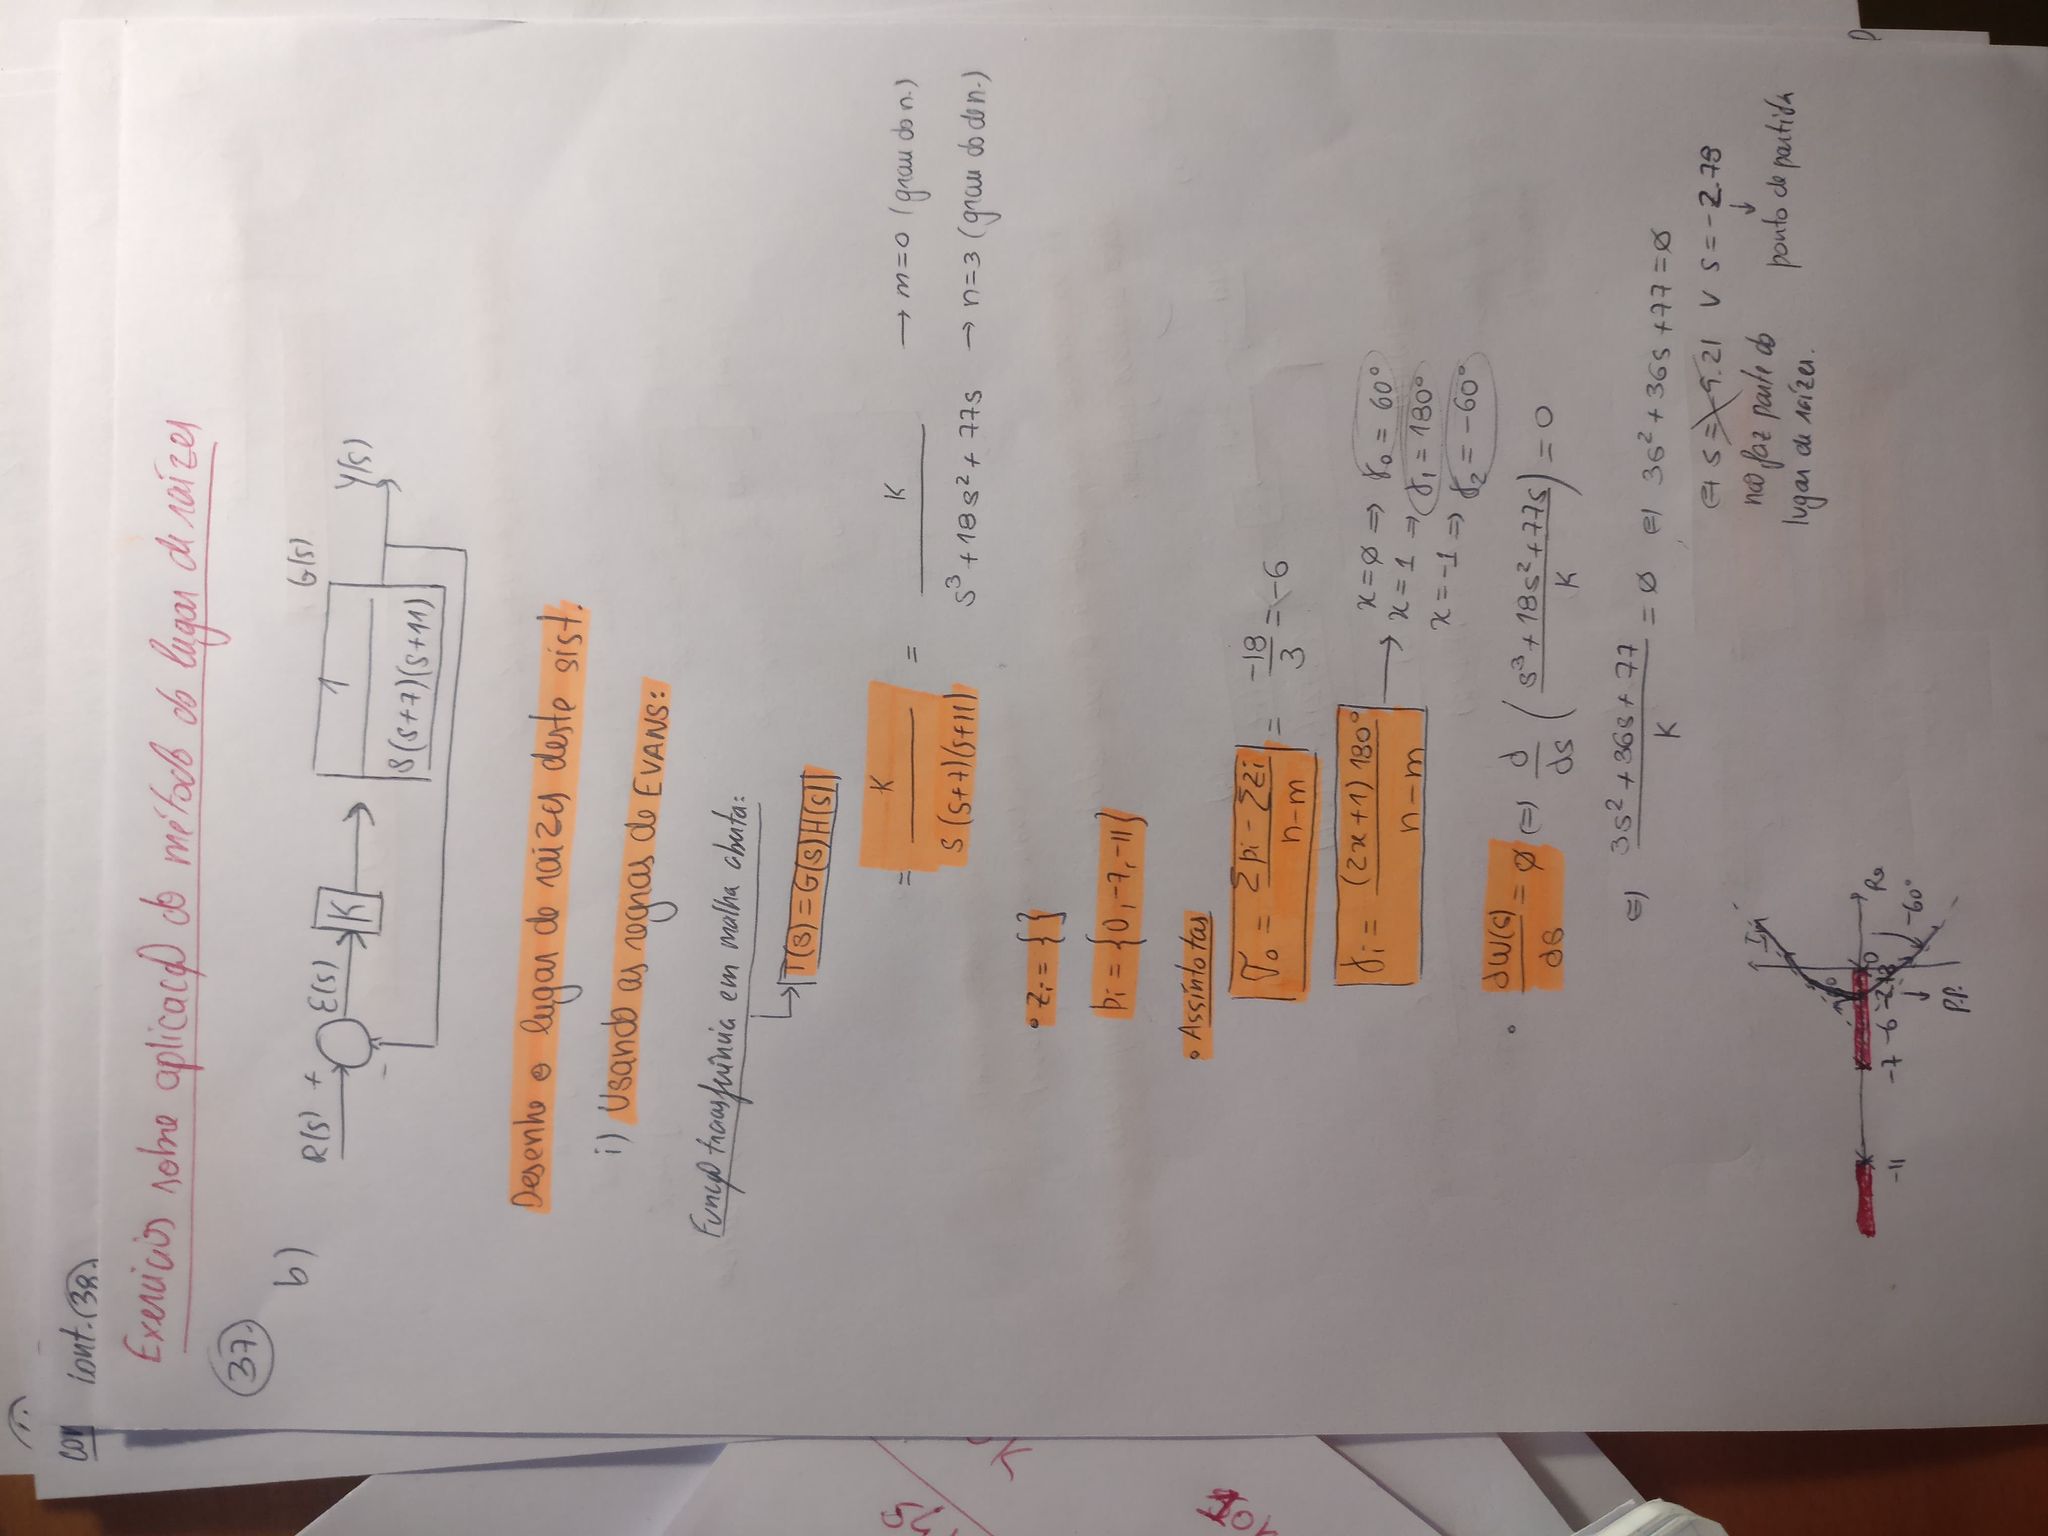 cont. (38.)
Exercícios sobre aplicação do método do lugar de raízes
37.
b)
R(s) + E(s) K G(s) Y(s)
-
1
s(s+7)(s+11)
Desenhe o lugar de raizes deste sist.
i) Usando as regras de EVANS:
Função transferência em malha aberta:
T(s) = G(s)H(s)
= K / s(s+7)(s+11) = K / s³+18s²+77s → m=0 (grau do n.)
→ n=3 (grau do den.)
• zi = { }
pi = {0,-7,-11}
• Assíntotas
σo = Σpi - Σzi / n-m = -18/3 = -6
γi = (2x+1) 180° / n-m → x=ø ⇒ γ0 = 60°
x=1 ⇒ γ1 = 180°
x=-1 ⇒ γ2 = -60°
• dW(s)/ds = ø ⇔ d/ds (s³+18s²+77s / K) = 0
⇔ 3s²+36s+77 / K = ø ⇔ 3s²+36s+77=ø
⇔ s=-9.21 V s=-2.79
não faz parte do
lugar de raízes.
↓
ponto de partida
Im
-11 -7 -6 -2.78 0 Re
-60°
↓
P.P.